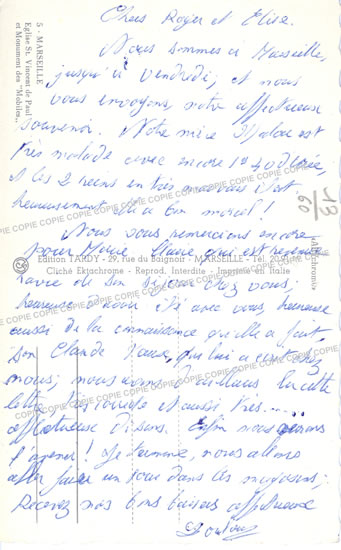 Chers Roger et Elise.
Nous sommes à Marseille,
jusqu'à vendredi, et nous
vous envoyons, notre affectueux
souvenir. Notre mère est
très malade avec encore 1g40 d'urée,
et les 2 reins en très mauvais état,
heureusement elle a bon moral!
Nous vous remercions encore
pour Marie Claire qui est revenue
ravie de son séjour chez vous;
heureuse avec vous, heureuse
aussi de la connaissance qu'elle a fait,
Son Claude nous;
nous; nous avons d'ailleurs lu cette
lettre et aussi très......
affectueuse disons. Enfin nous
l'avenir! Je termine, nous allons
aller faire un tour dans les magasins;
Recevez nos bons baisers affectueux
5 - MARSEILLE
Eglise St. Vincent de Paul
et Monument des "Mobiles"
Edition TARDY - 29, rue du Baignoir - MARSEILLE - Tél. 20
Cliché Ektachrome - Reprod. Interdite - Imprimé en Italie
13
60
COPIE COPIE COPIE COPIE COPIE COPIE COPIE COPIE
COPIE COPIE COPIE COPIE COPIE COPIE COPIE COPIE